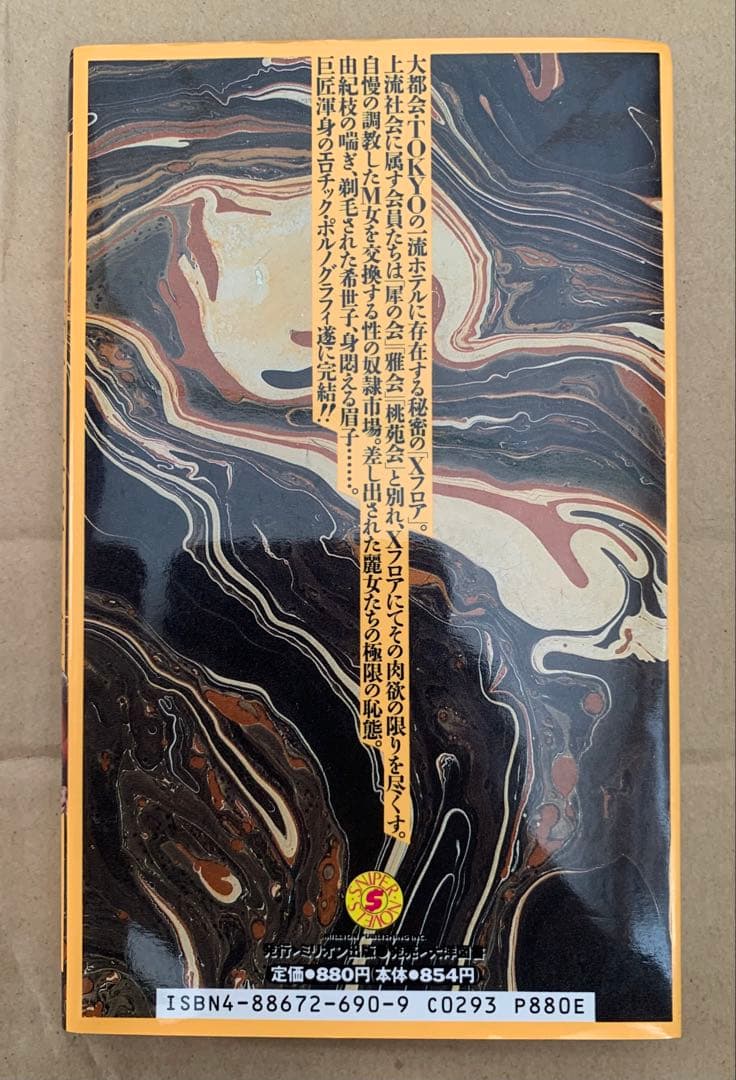 大都会・TOKYOの一流ホテルに存在する秘密の「Xフロア」。
上流社会に属す会員たちは「犀の会」「雅会」「桃苑会」と別れ、Xフロアにてその肉欲の限りを尽くす。
自慢の調教したM女を交換する性の奴隷市場。差し出された麗女たちの極限の恥態。
由紀枝の喘ぎ、剃毛された希世子、身悶える眉子……。
巨匠渾身のエロチック・ポルノグラフィ遂に完結!!
SNIPER NOVELS
S
MILLION PUBLISHING INC.
発行・ミリオン出版●発売・大洋図書
定価●880円 本体●854円
ISBN4-88672-690-9 C0293 P880E